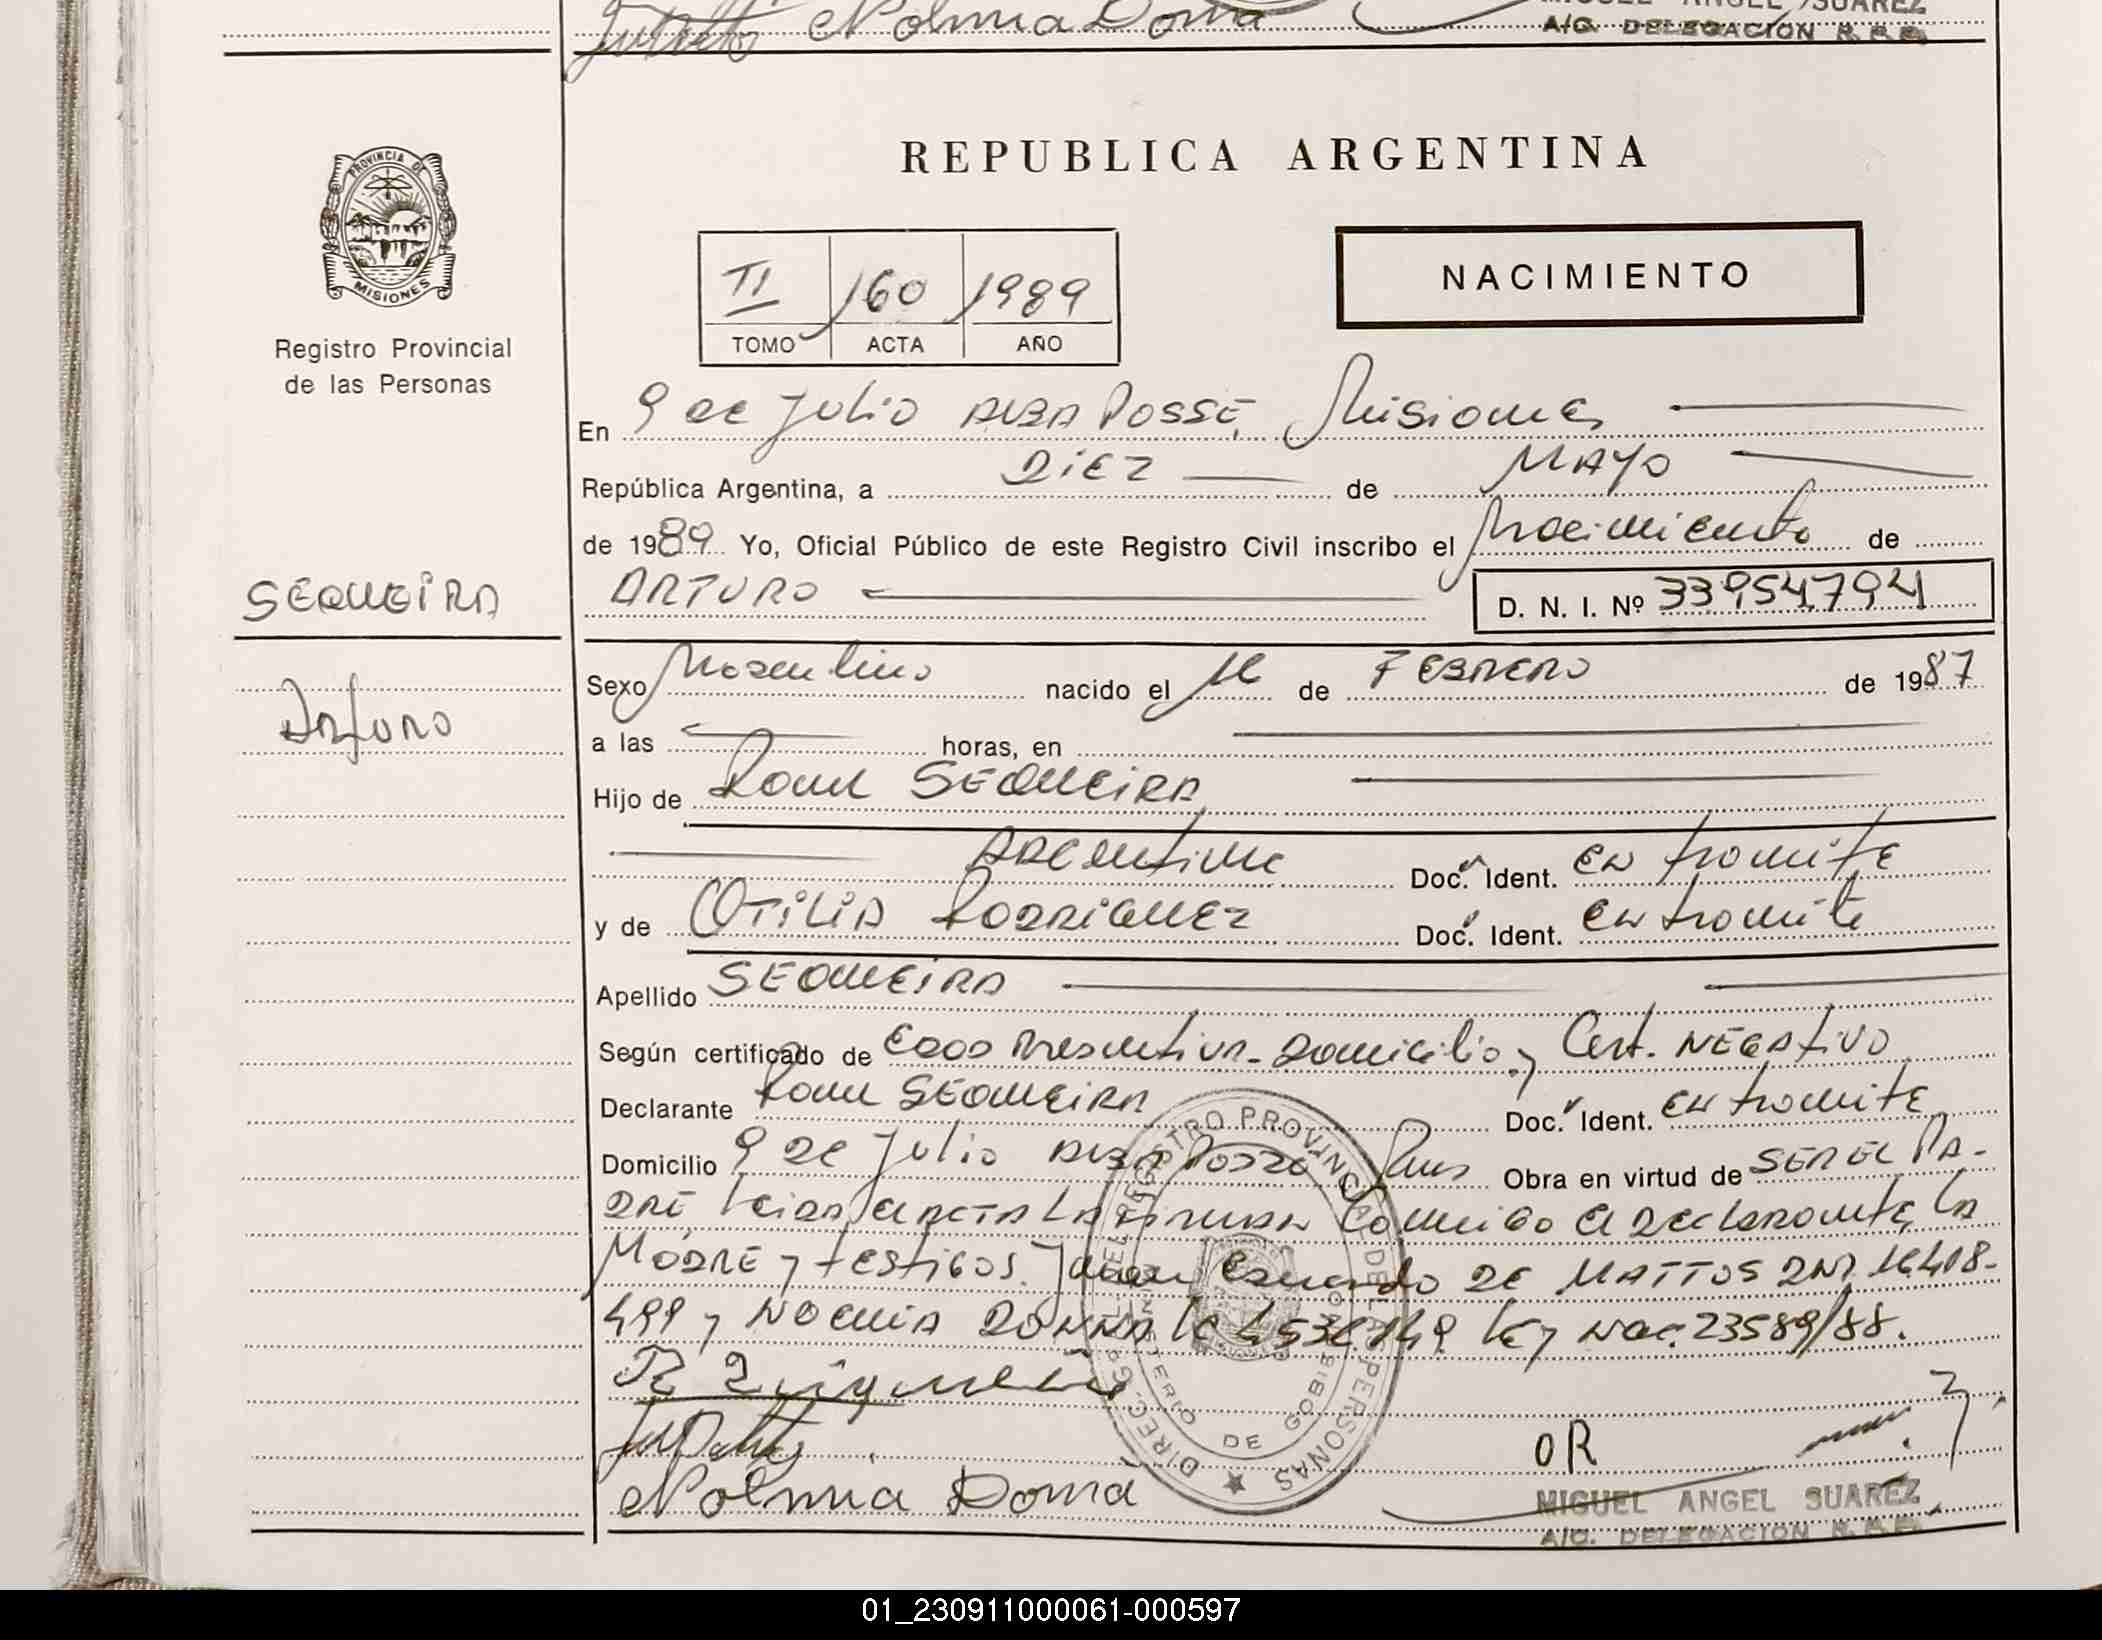 Nolmia Doma
MIGUEL ANGEL SUAREZ
A/C. DELEGACION R.P.P.
PROVINCIA DE
MISIONES
Registro Provincial
de las Personas
REPUBLICA ARGENTINA
NACIMIENTO
II 160 1989
TOMO ACTA AÑO
En 9 de Julio ALBA POSSE, Misiones
República Argentina, a DIEZ de MAYO
de 1989 Yo, Oficial Público de este Registro Civil inscribo el Nacimiento de
ARTURO D. N. I. Nº 33.954.794
SEQUEIRA
Arturo
Sexo Masculino nacido el de FEBRERO de 1987
a las horas, en
Hijo de SEQUEIRA
Argentino Doc. Ident. en tramite
y de OTILIA RODRIGUEZ Doc. Ident. en tramite
Apellido SEQUEIRA
Según certificado de Edad Presuntiva - Domicilio y Cert. NEGATIVO
Declarante SEQUEIRA Doc. Ident. en tramite
Domicilio 9 de Julio ALBA Posse Mnes Obra en virtud de SER EL PA-
DRE Leida el ACTA LA FIRMAN Conmigo el Declarante, la
MADRE y testigos. DE MATTOS DNI 16.418.
499 y NOEMIA Ley Nac. 23589/88.
Nolmia Doma
OR
MIGUEL ANGEL SUAREZ
A/C. DELEGACION R.P.P.
DIREC. G. DEL REGISTRO PROVINCIAL DE LAS PERSONAS
MINISTERIO DE GOBIERNO
01_230911000061-000597